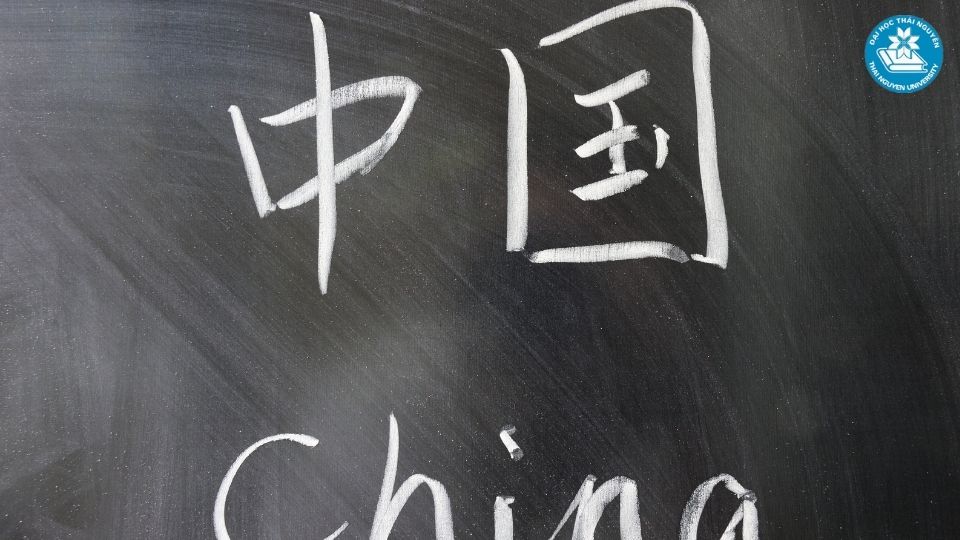 ĐẠI HỌC THÁI NGUYÊN
THAI NGUYEN UNIVERSITY
中国
China